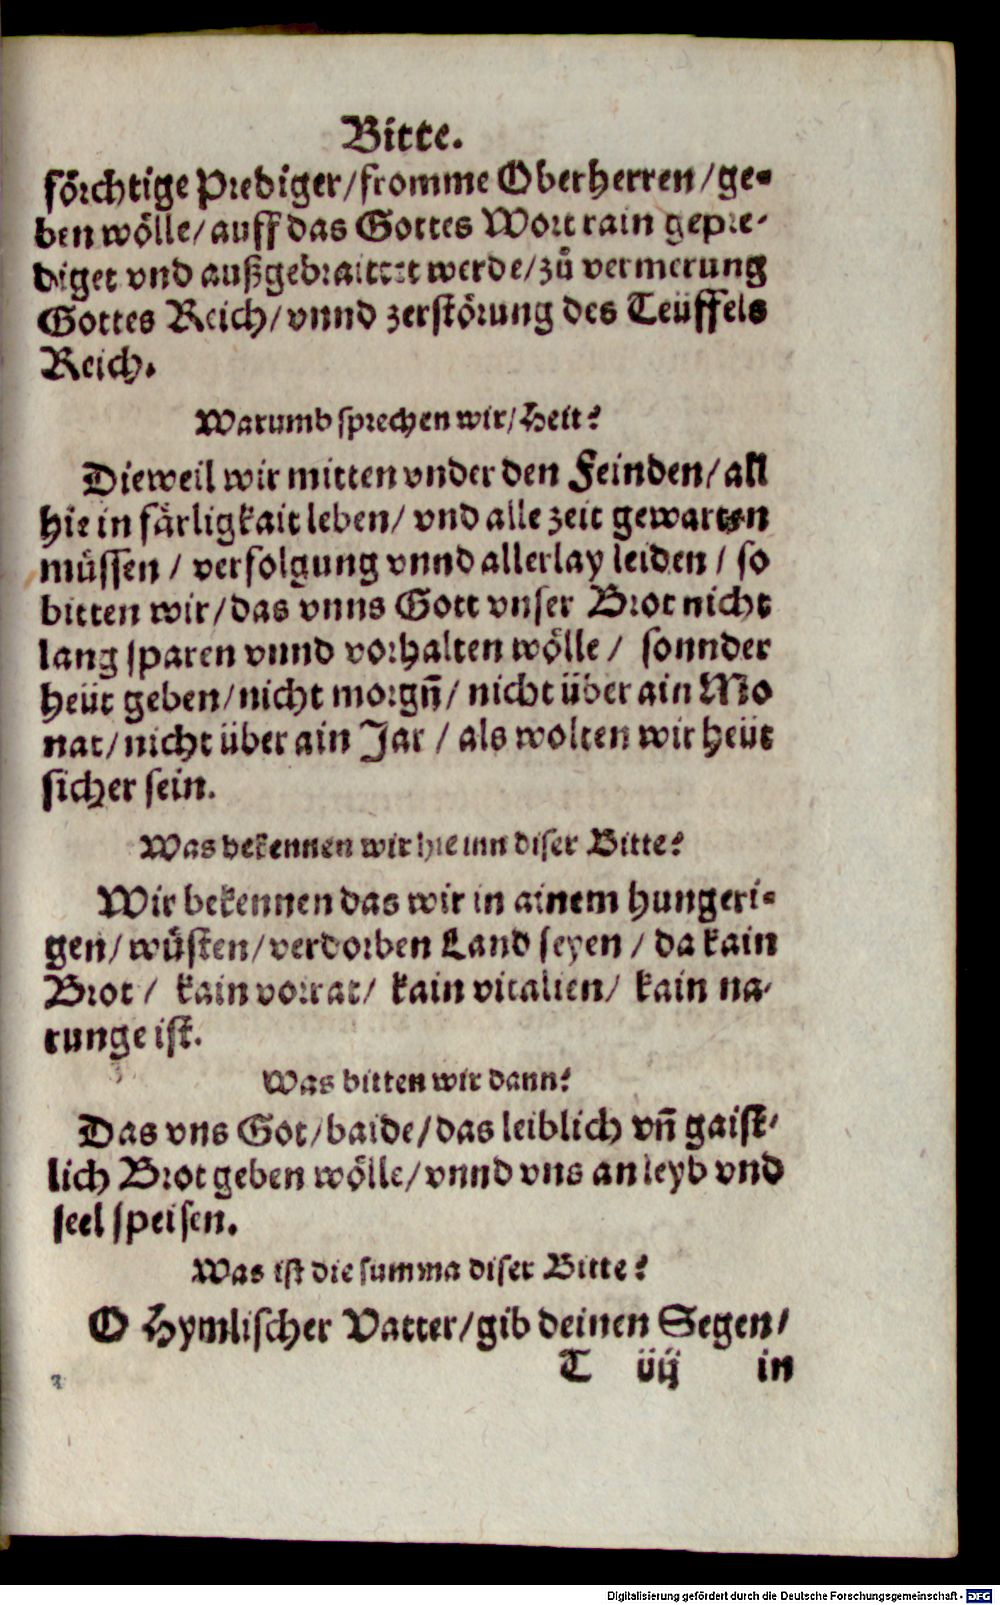 Bitte.
förchtige Prediger/fromme Oberherren/ge-
ben wölle/auff das Gottes Wort rain gepre-
diget vnd außgebraittet werde/zů vermerung
Gottes Reich/vnnd zerstörung des Teüffels
Reich.
Warumb sprechen wir/Heit?
Dieweil wir mitten vnder den Feinden/all
hie in färligkait leben/ vnd alle zeit gewarten
müssen / verfolgung vnnd allerlay leiden / so
bitten wir/das vnns Gott vnser Brot nicht
lang sparen vnnd vorhalten wölle/ sonnder
heüt geben/nicht morgñ/ nicht über ain Mo
nat/nicht über ain Jar / als wolten wir heüt
sicher sein.
Was bekennen wir hie inn diser Bitte?
Wir bekennen das wir in ainem hungeri-
gen/wüsten/verdorben Land seyen / da kain
Brot / kain vorrat/ kain vitalien/ kain na-
runge ist.
Was bitten wir dann?
Das vns Got/baide/das leiblich vñ gaist-
lich Brot geben wölle/vnnd vns an leyb vnd
seel speisen.
Was ist die summa diser Bitte?
O Hymlischer Vatter/gib deinen Segen/
T iiij in
Digitalisierung gefördert durch die Deutsche Forschungsgemeinschaft - DFG